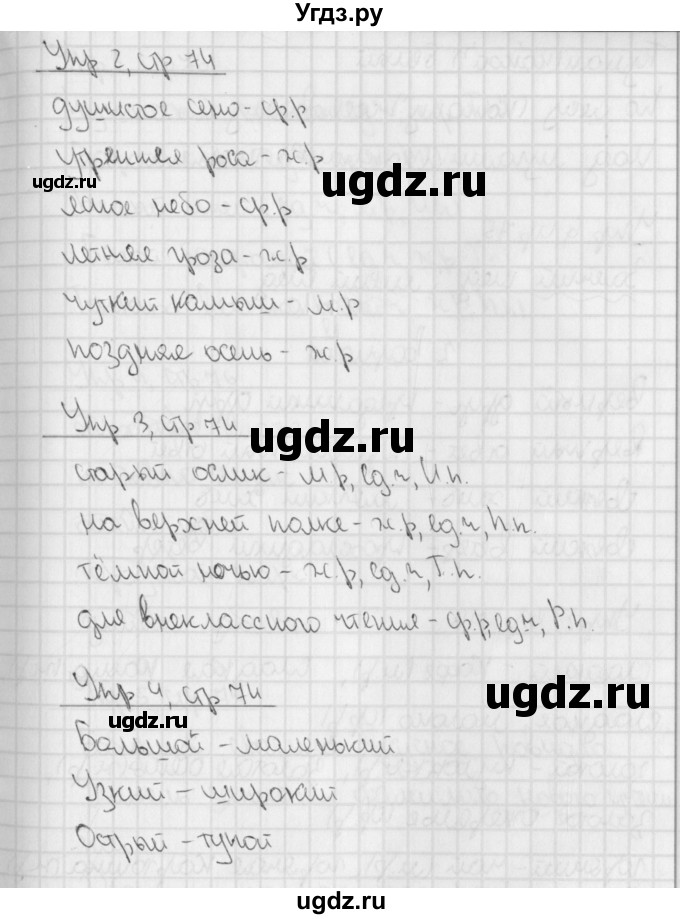 Угдз.ру
Упр 2, стр 74
душистое сено - ср.р
утренняя роса - ж.р
ugdz.ru
ugdz.ru
ясное небо - ср.р
летняя гроза - ж.р
чуткий камыш - м.р
поздняя осень - ж.р
Упр 3, стр 74
ugdz.ru
ugdz.ru
старый ослик - м.р, ед.ч, И.п.
на верхней полке - ж.р, ед.ч, П.п.
тёмной ночью - ж.р, ед.ч, Т.п.
для внеклассного чтения - ср.р, ед.ч, Р.п.
Упр 4, стр 74
ugdz.ru
ugdz.ru
Большой - маленький
Узкий - широкий
Острый - тупой
ugdz.ru